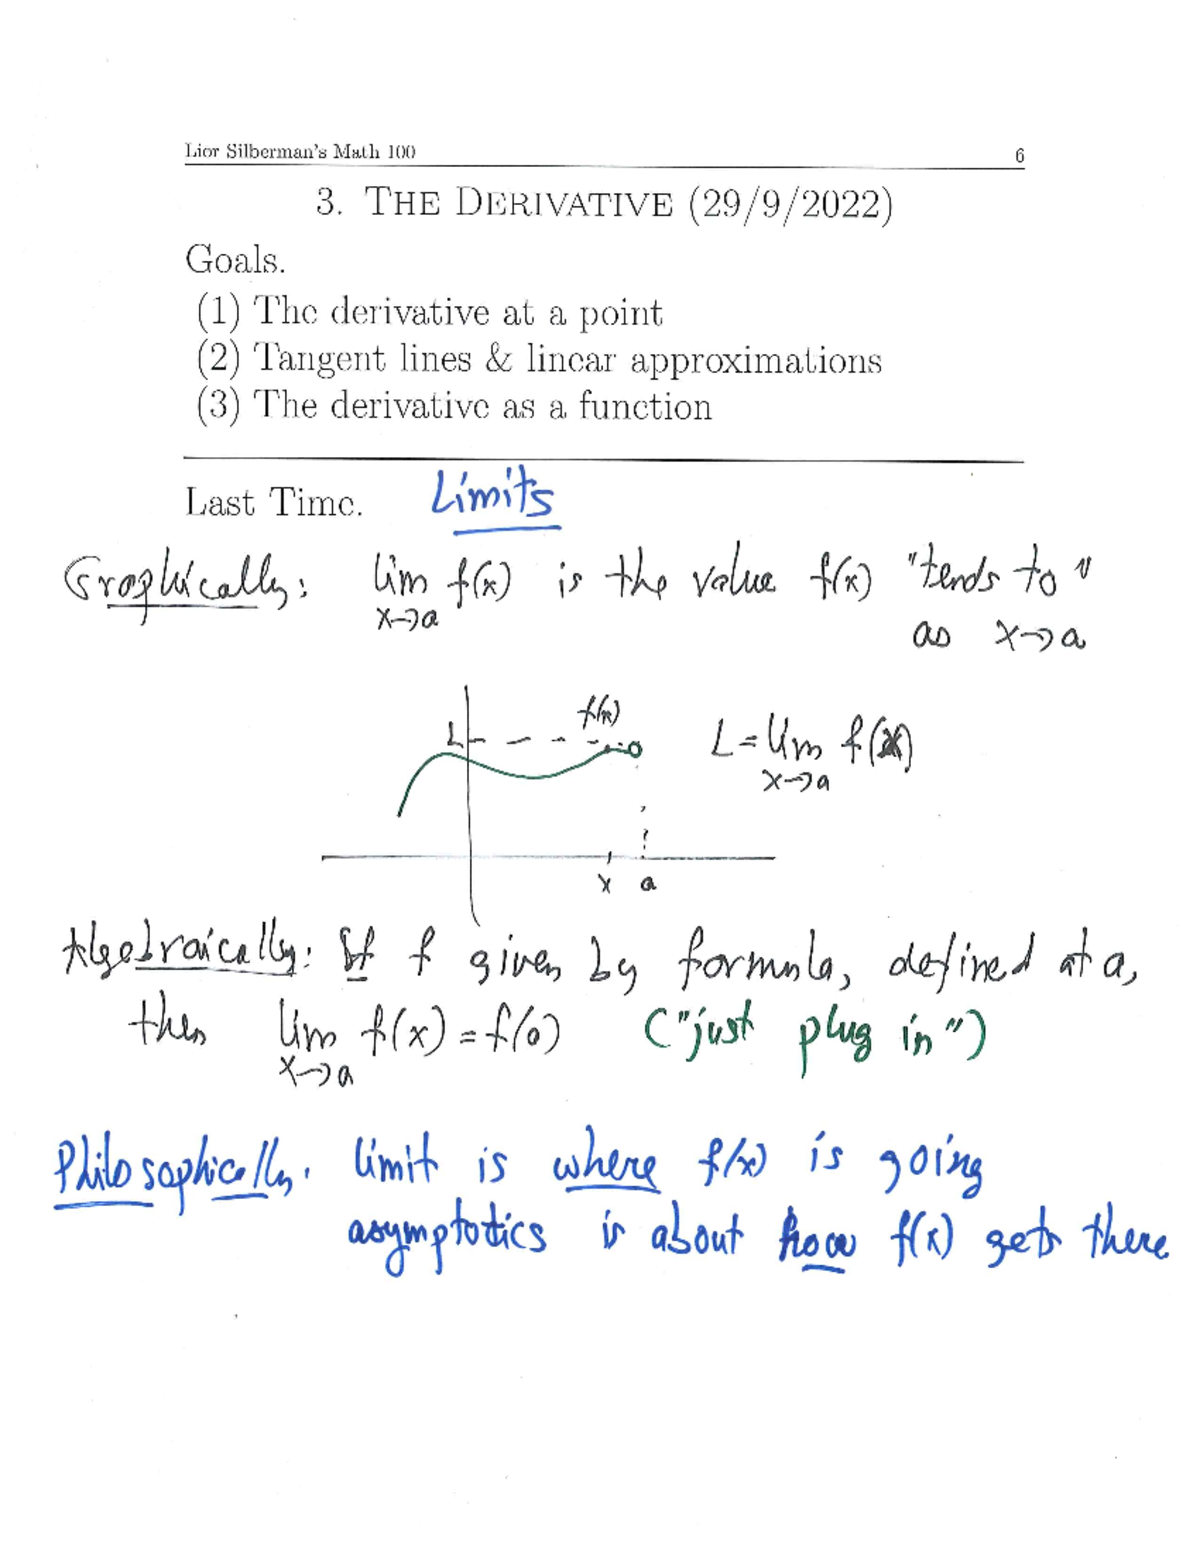 Lior Silberman's Math 100 6
3. THE DERIVATIVE (29/9/2022)
Goals.
(1) The derivative at a point
(2) Tangent lines & linear approximations
(3) The derivative as a function
Last Time. Limits
Graphically: lim f(x) is the value f(x) "tends to"
x→a as x→a
f(x)
L L=lim f(x)
x→a
x a
Algebraically: If f given by formula, defined at a,
then lim f(x) = f(a) ("just plug in")
x→a
Philosophically. limit is where f(x) is going
asymptotics is about how f(x) gets there